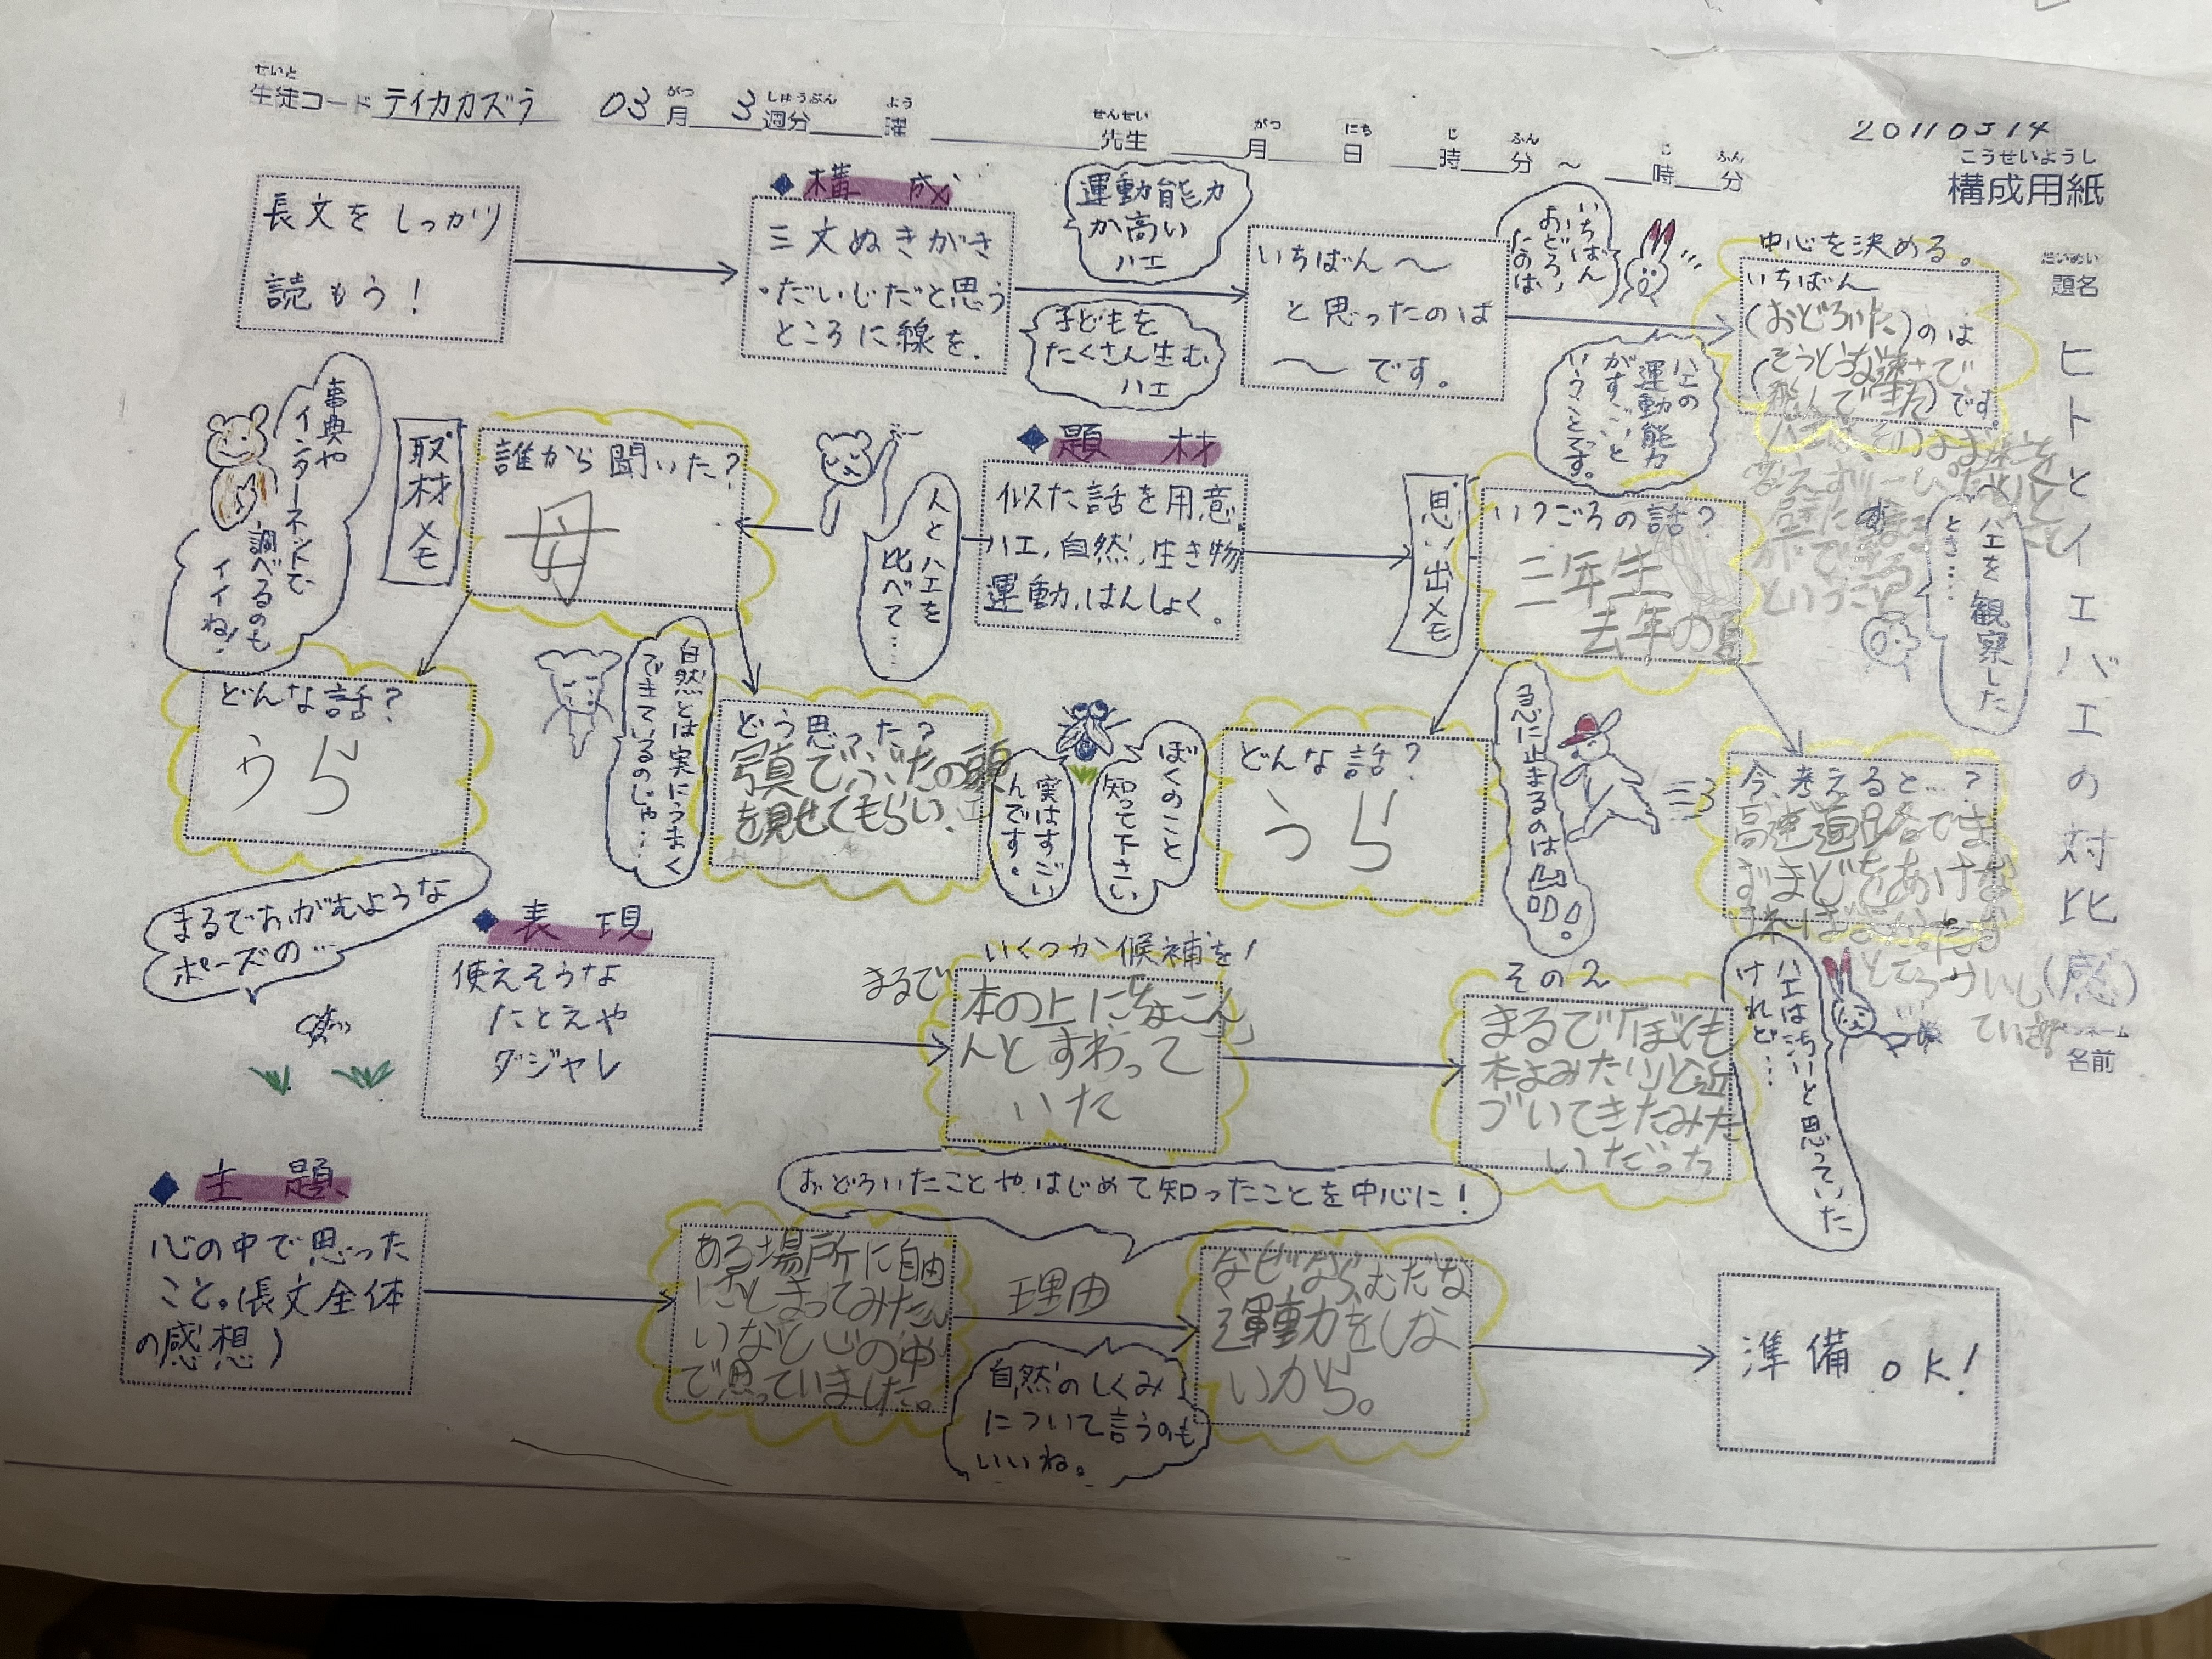 せいと
生徒コード テイカカズラ 03月 3週分 曜 先生 月 日 時 分 ～ 時 分
がつ しゅうぶん よう せんせい がつ にち じ ふん じ ふん
20110314
こうせいようし
構成用紙
だいめい
題名
ヒトとイエバエの対比(感)
名前
長文をしっかり
読もう!
◆構成
三文ぬきがき
・だいじだと思う
ところに線を.
運動能力
が高い
ハエ
子どもを
たくさん生む
ハエ
いちばん～
と思ったのは
～です。
いちばん
おどろい
たのは
ハエの
運動能力
がすごいと
いうことです。
中心を決める。
いちばん
(おどろいた)のは
(そうとうな速さで
飛んできた)です
ハエを観察した
とき……
思い出メモ
いつごろの話?
三年生
去年の夏
◆題材
似た話を用意.
ハエ,自然,生き物
運動,はんしょく。
人とハエを
比べて……
取材メモ
誰から聞いた?
母
事典や
インターネットで
調べるのも
イイね!
どんな話?
うら
自然とは実にうまく
できているのじゃ…
どう思った?
写真でぶたの頭
を見せてもらい、
ぼくのこと
知って下さい
実はすごい
んです。
どんな話?
うら
急に止まるのは
今、考えると…?
高速道路でま
ずまどをあけな
ハエは汚いと思っていた
けれど…
まるでおがむような
ポーズの…
◆表現
使えそうな
たとえや
ダジャレ
いくつか候補を!
まるで
本の上に「
んとすわって
いた
その2
まるで「ぼくも
本よみたい」と近
づいてきたみた
いだった
おどろいたことや、はじめて知ったことを中心に!
◆主題
心の中で思った
こと。(長文全体
の感想)
ある場所に自由
にとまってみた
いなと心の中
で思っていました。
理由
自然のしくみ
について言うのも
いいね。
なぜなら、むだな
運動をしな
いから。
準備OK!